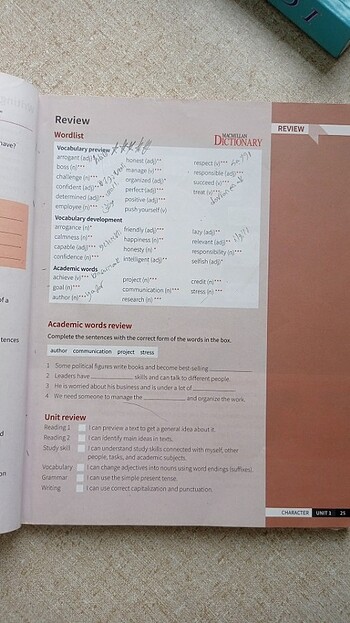 Review
REVIEW
Wordlist
MACMILLAN
DICTIONARY
Vocabulary preview
arrogant (adj)
boss (n)***
challenge (n)***
confident (adj)**
determined (adj)
employee (n)***
honest (adj)**
manage (v)***
organized (adj)*
perfect (adj)***
positive (adj)***
push yourself (v)
respect (v)***
responsible (adj)***
succeed (v)***
treat (v)***
Vocabulary development
arrogance (n)
calmness (n)
capable (adj)
confidence (n)***
friendly (adj)***
happiness (n)**
honesty (n)*
intelligent (adj)**
lazy (adj)**
relevant (adj)
responsibility (n)***
selfish (adj)*
Academic words
achieve (v)
goal (n)***
author (n)
project (n)***
communication (n)***
research (n) ***
credit (n)***
stress (n) ***
Academic words review
Complete the sentences with the correct form of the words in the box.
author communication project stress
1 Some political figures write books and become best-selling
2 Leaders have skills and can talk to different people.
3 He is worried about his business and is under a lot of
4 We need someone to manage the and organize the work.
Unit review
Reading 1 I can preview a text to get a general idea about it.
Reading 2 I can identify main ideas in texts.
Study skill I can understand study skills connected with myself, other
people, tasks, and academic subjects.
Vocabulary I can change adjectives into nouns using word endings (suffixes).
Grammar I can use the simple present tense.
Writing I can use correct capitalization and punctuation.
CHARACTER UNIT 1 25